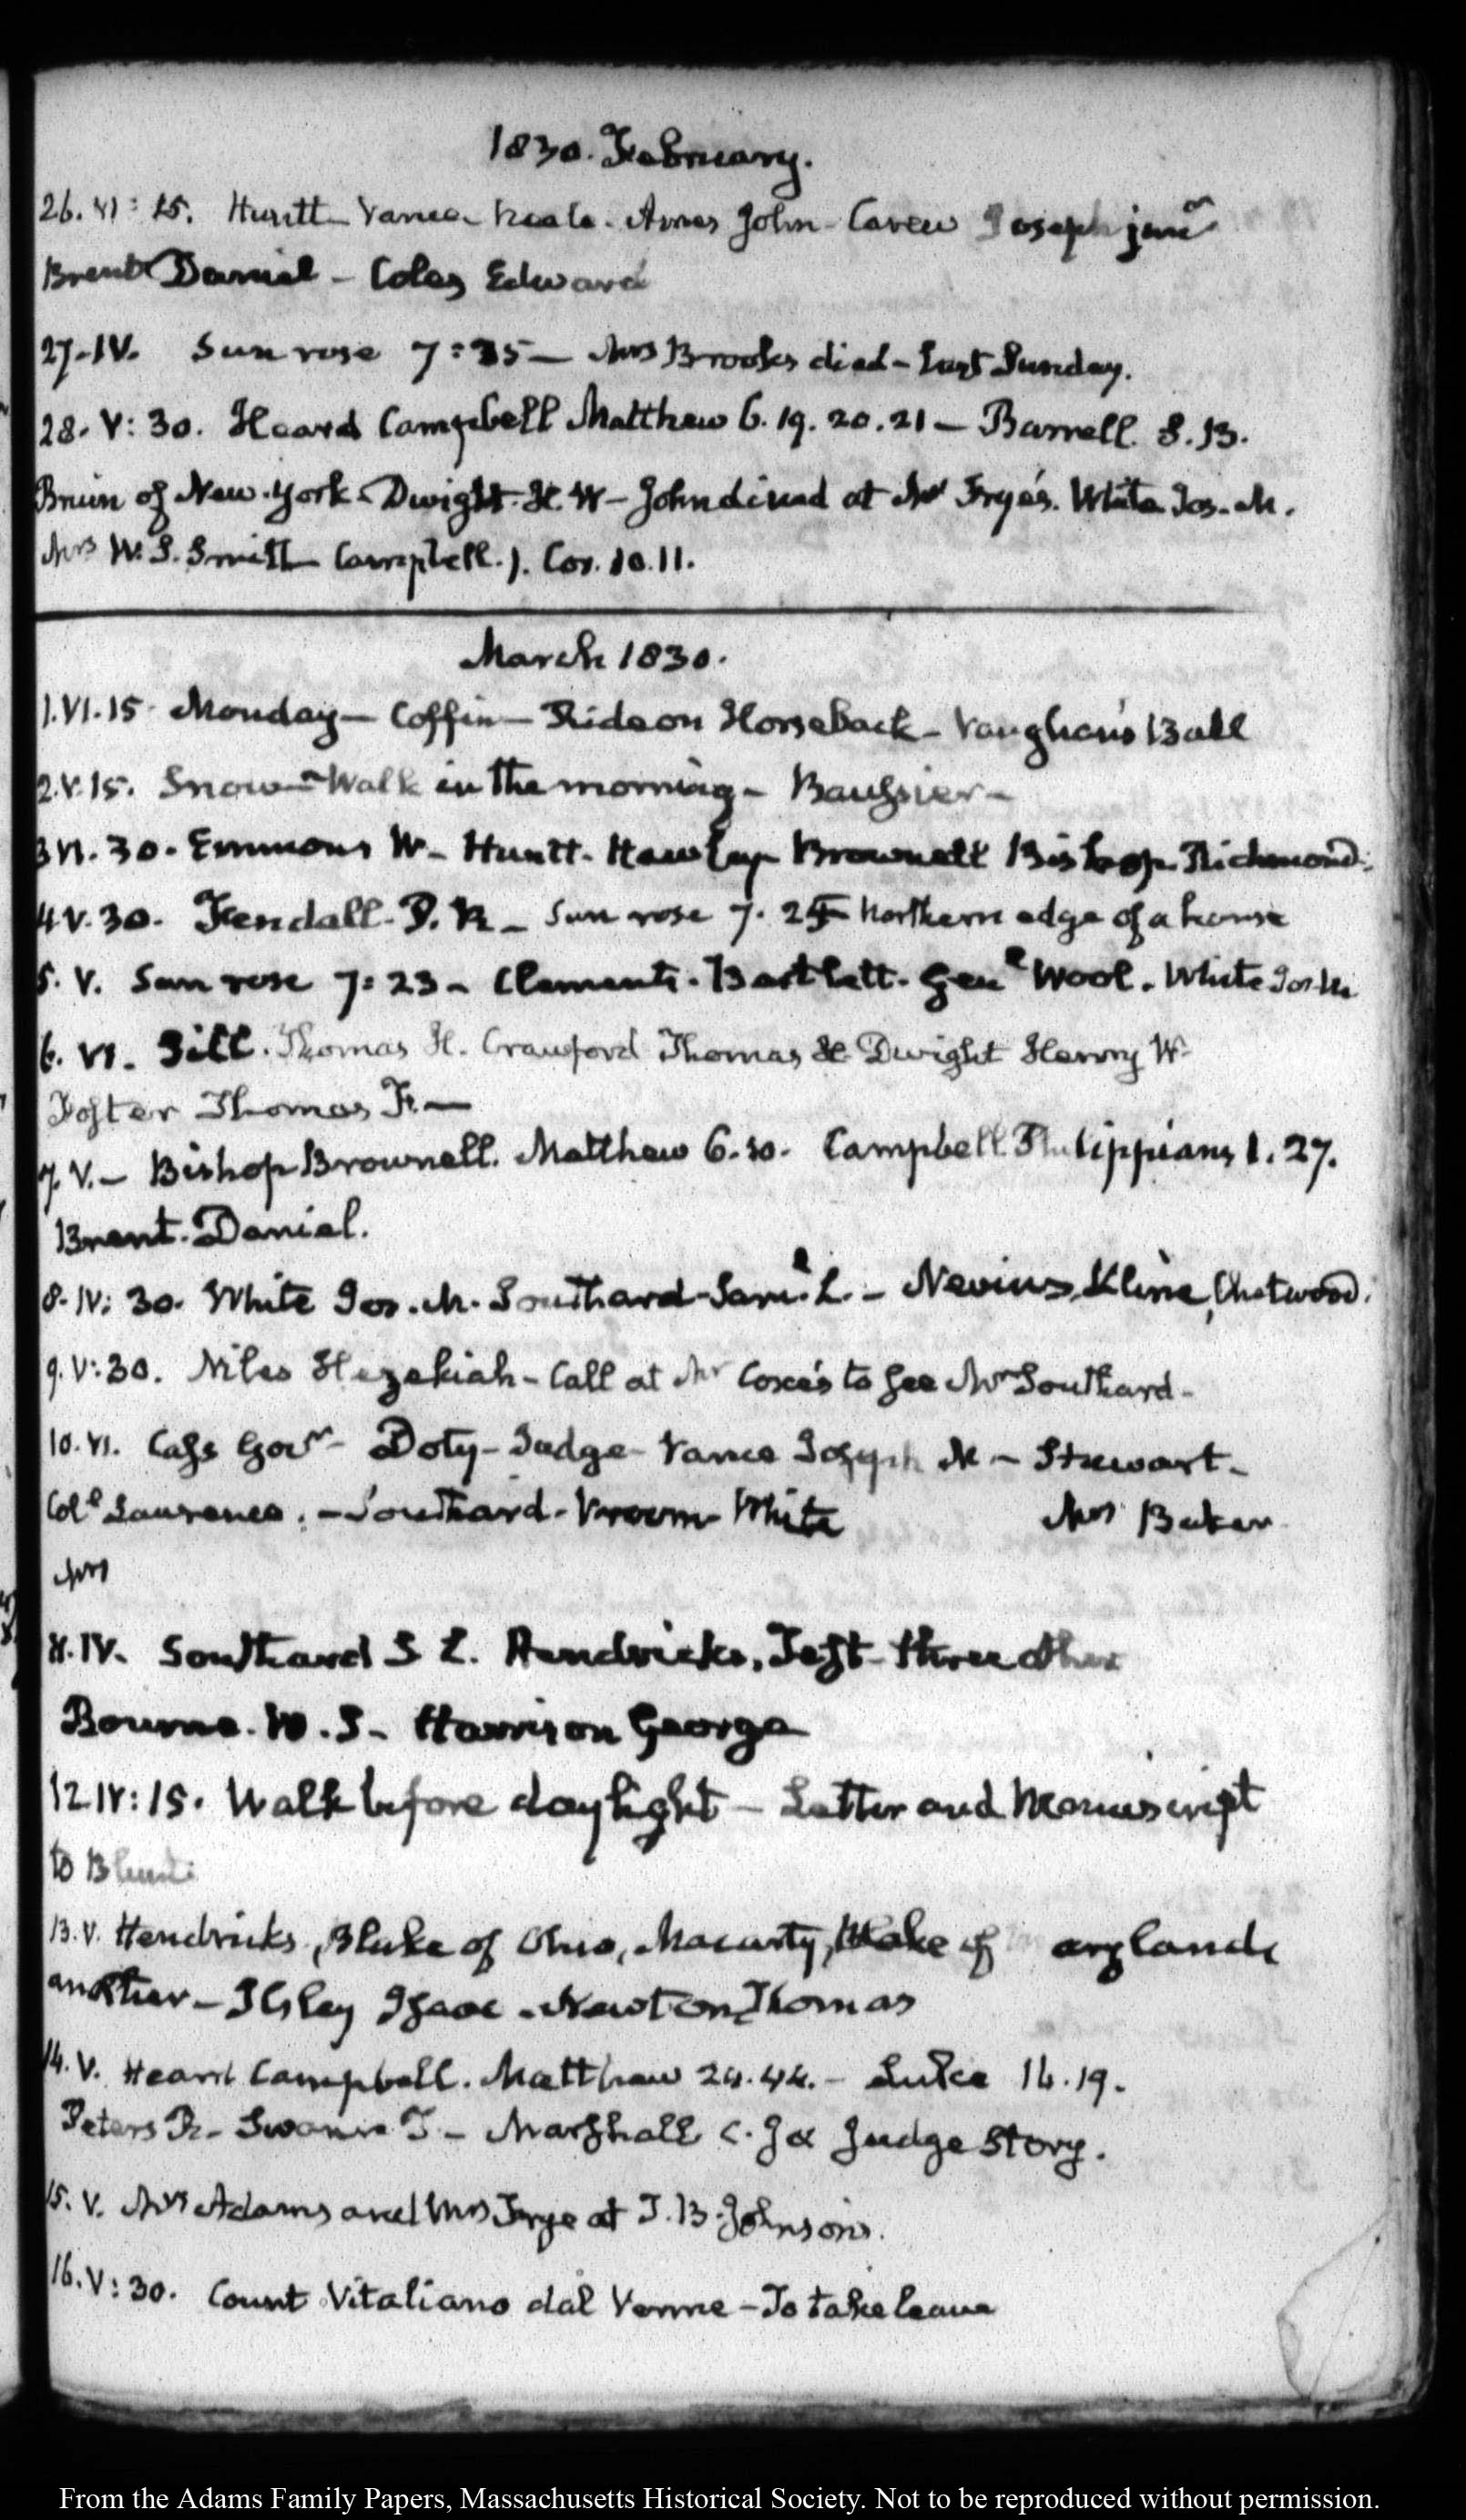 1830. February.
26. VI: 15. Huntt Vance Neale. Ames John - Carew Joseph junr
Brent Daniel - Coles Edward
27. IV. Sun rose 7:25 - Mrs Brooks died - last Sunday.
28. V: 30. Heard Campbell Matthew 6. 19. 20. 21 - Barrell. S. B.
Bruin of New-York. Dwight. H. W - John dined at Mr Frye's. White Jos. M.
Mrs W. S. Smith Campbell. 1. Cor. 10. 11.
March 1830.
1. VI. 15 Monday - Coffin - Ride on Horseback - Vaughan's Ball
2. V. 15. Snow - Walk in the morning - Baussier -
3 VI. 30. Emmons W - Huntt. Hawley Brownell Bishop. Richmond.
4 V. 30. Fendall. P. R - Sun rose 7. 25 Northern edge of a house
5. V. Sun rose 7:23 - Clements. Bartlett. Genl Wool. White Jos M
6. VI. Sill. Thomas H. Crawford Thomas H Dwight Henry W
Foster Thomas F. -
7. V. - Bishop Brownell. Matthew 6. 10. Campbell Philippians 1. 27.
Brent. Daniel.
8. IV: 30. White Jos. M. Southard Saml. L. - Nevius, Kline, Chetwood.
9. V: 30. Niles Hezekiah - Call at Mr Coxe's to see Mr Southard -
10. VI. Cass Govr - Doty - Judge - Vance Joseph M - Stewart -
Coll Laurence. - Southard - Vroom White Mrs Baker
Mrs
11. IV. Southard S L. Hendricks, Test - three other
Bourne. W. S - Harrison George
12 IV: 15. Walk before daylight - Letter and Manuscript
to Blunt.
13. V. Hendricks, Blake of Ohio, Macarty, Blake of aryland
another - Ilsley Isaac - Newton Thomas
14. V. Heard Campbell. Matthew 24. 44. - Luke 16. 19.
Peters R - Swann T - Marshall C. J & Judge Story.
15. V. Mrs Adams and Mrs Frye at J. B. Johnson's.
16. V: 30. Count Vitaliano dal Verme - To take leave
From the Adams Family Papers, Massachusetts Historical Society. Not to be reproduced without permission.